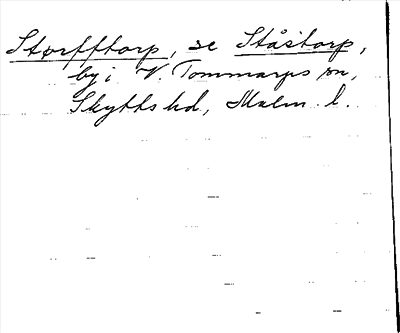 Størfftorp, se Ståstorp,
by i V. Tommarps sn,
Skytts hd, Malm. l.